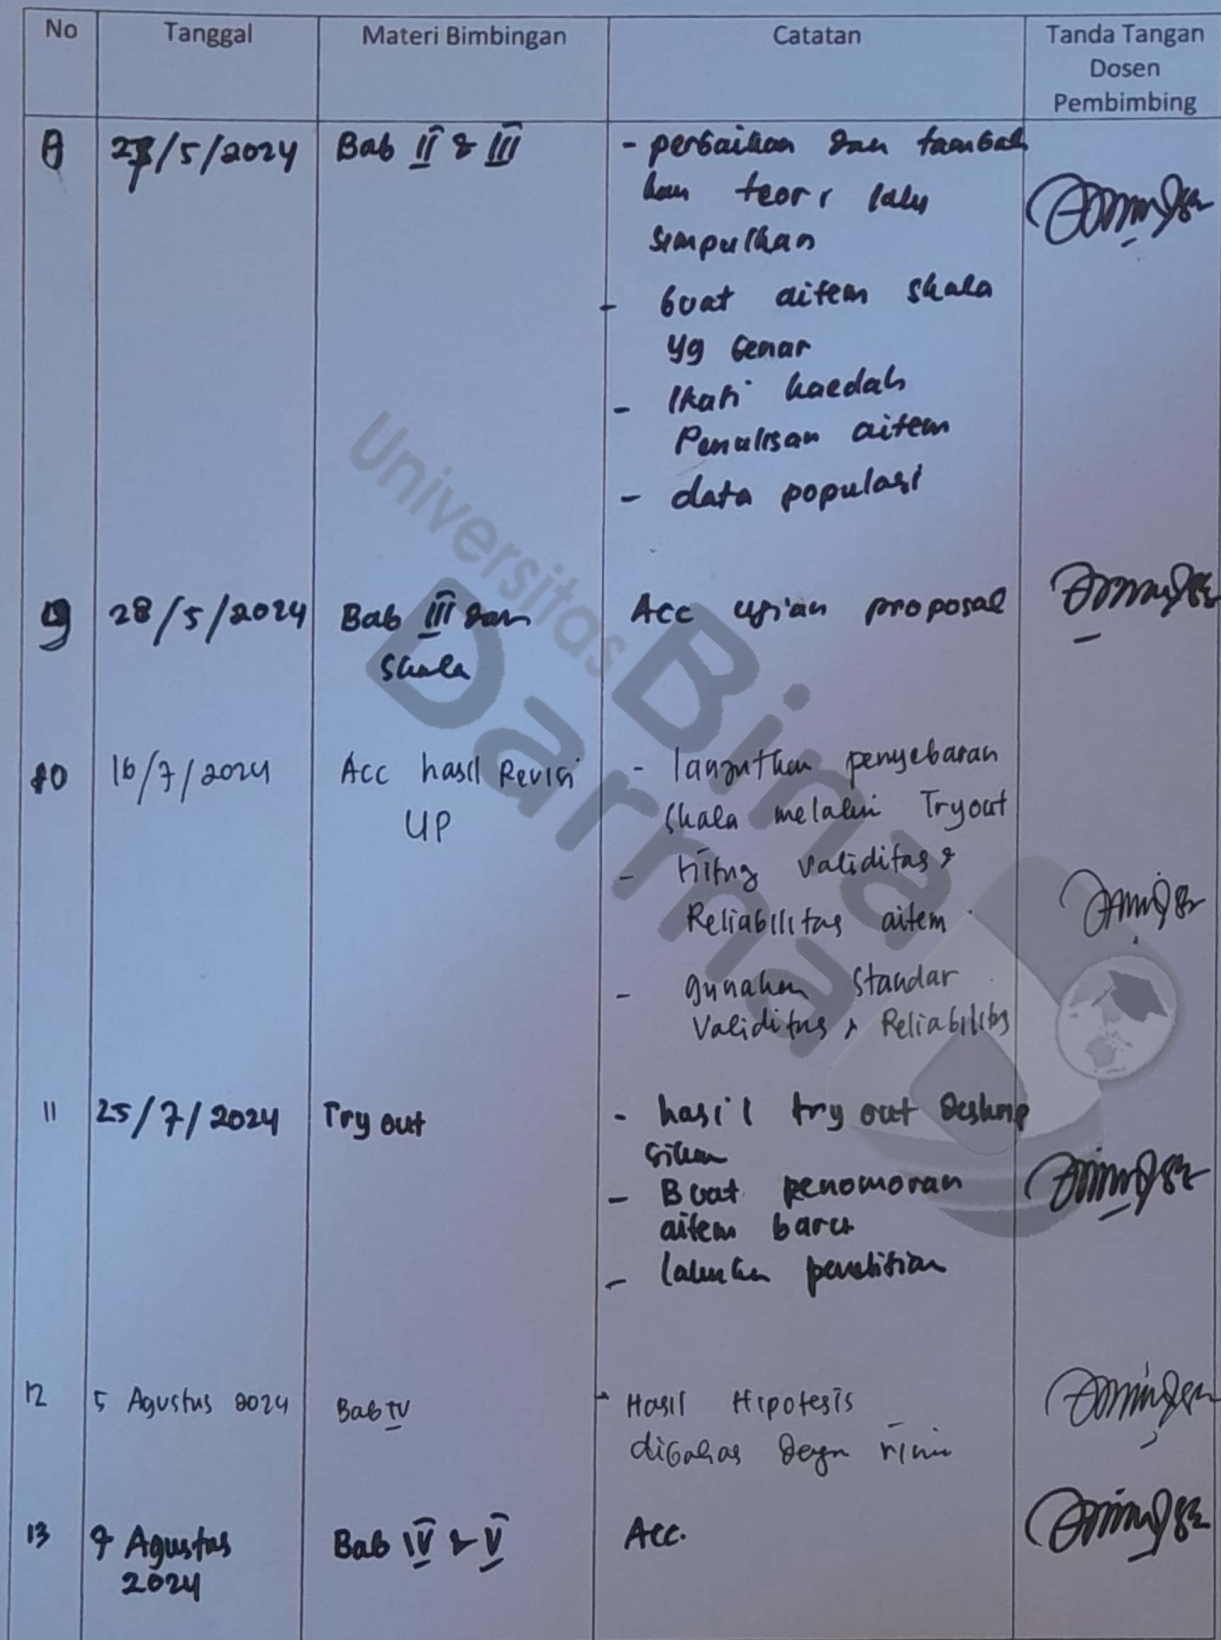 No Tanggal Materi Bimbingan Catatan Tanda Tangan
Dosen
Pembimbing
8 27/5/2024 Bab II & III - perbaikan dan tambah
kan teori lalu
simpulkan
- buat aitem skala
yg benar
- Ikuti kaedah
Penulisan aitem
- data populasi
9 28/5/2024 Bab III dan Acc ujian proposal
Skala
10 16/7/2024 Acc hasil Revisi - lanjutkan penyebaran
UP skala melalui Tryout
- hitung validitas &
Reliabilitas aitem
- gunakan standar
Validitas & Reliabilitas
11 25/7/2024 Try out - hasil try out deskrip
sikan
- Buat penomoran
aitem baru
- lakukan penelitian
12 5 Agustus 2024 Bab IV - Hasil Hipotesis
dibahas dengn rinci
13 Agustus Bab IV & V Acc.
2024
Universitas
Bina
Darma